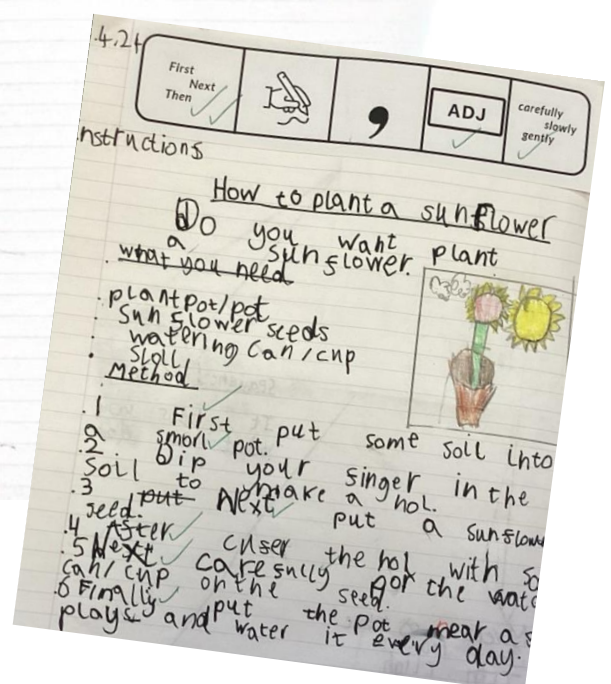 .4.24
First
Next
Then
,
ADJ
carefully
slowly
gently
nstructions
How to plant a sunflower
Do you want plant
a sunflower.
what you need
. plantpot/pot
. sunflower seeds
. watering can/cup
. sloll
Method
.1 First put some soil into
a smorl pot.
.2 Dip your singer in the
soil to make a hol.
.3 put Next put a sunflow
seed.
.4 After cuser the hol with so
.5 Next carefully por the wate
can/cup on the seed.
.6 Finally put the pot near a s
plays and water it every day.